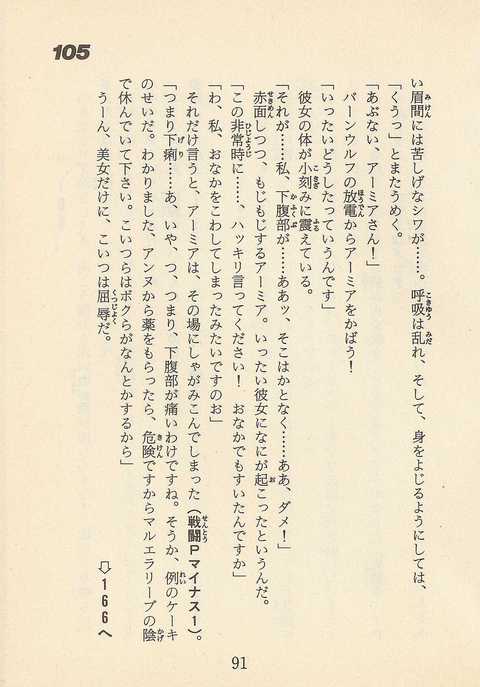 105
い眉間には苦しげなシワが……。呼吸は乱れ、そして、身をよじるようにしては、
「くうっ」とまたうめく。
「あぶない、アーミアさん！」
バーンウルフの放電からアーミアをかばう！
「いったいどうしたっていうんです」
彼女の体が小刻みに震えている。
「それが……私、下腹部が……ああッ、そこはかとなく……ああ、ダメ！」
赤面しつつ、もじもじするアーミア。いったい彼女になにが起こったというんだ。
「この非常時に……、ハッキリ言ってください！　おなかでもすいたんですか」
「わ、私、おなかをこわしてしまったみたいですのお」
それだけ言うと、アーミアは、その場にしゃがみこんでしまった（戦闘Pマイナス1）。
「つまり下痢……あ、いや、つ、つまり、下腹部が痛いわけですね。そうか、例のケーキ
のせいだ。わかりました、アンヌから薬をもらったら、危険ですからマルエラリーブの陰
で休んでいて下さい。こいつらはボクらがなんとかするから」
うーん、美女だけに、こいつは屈辱だ。
⇨166へ
91